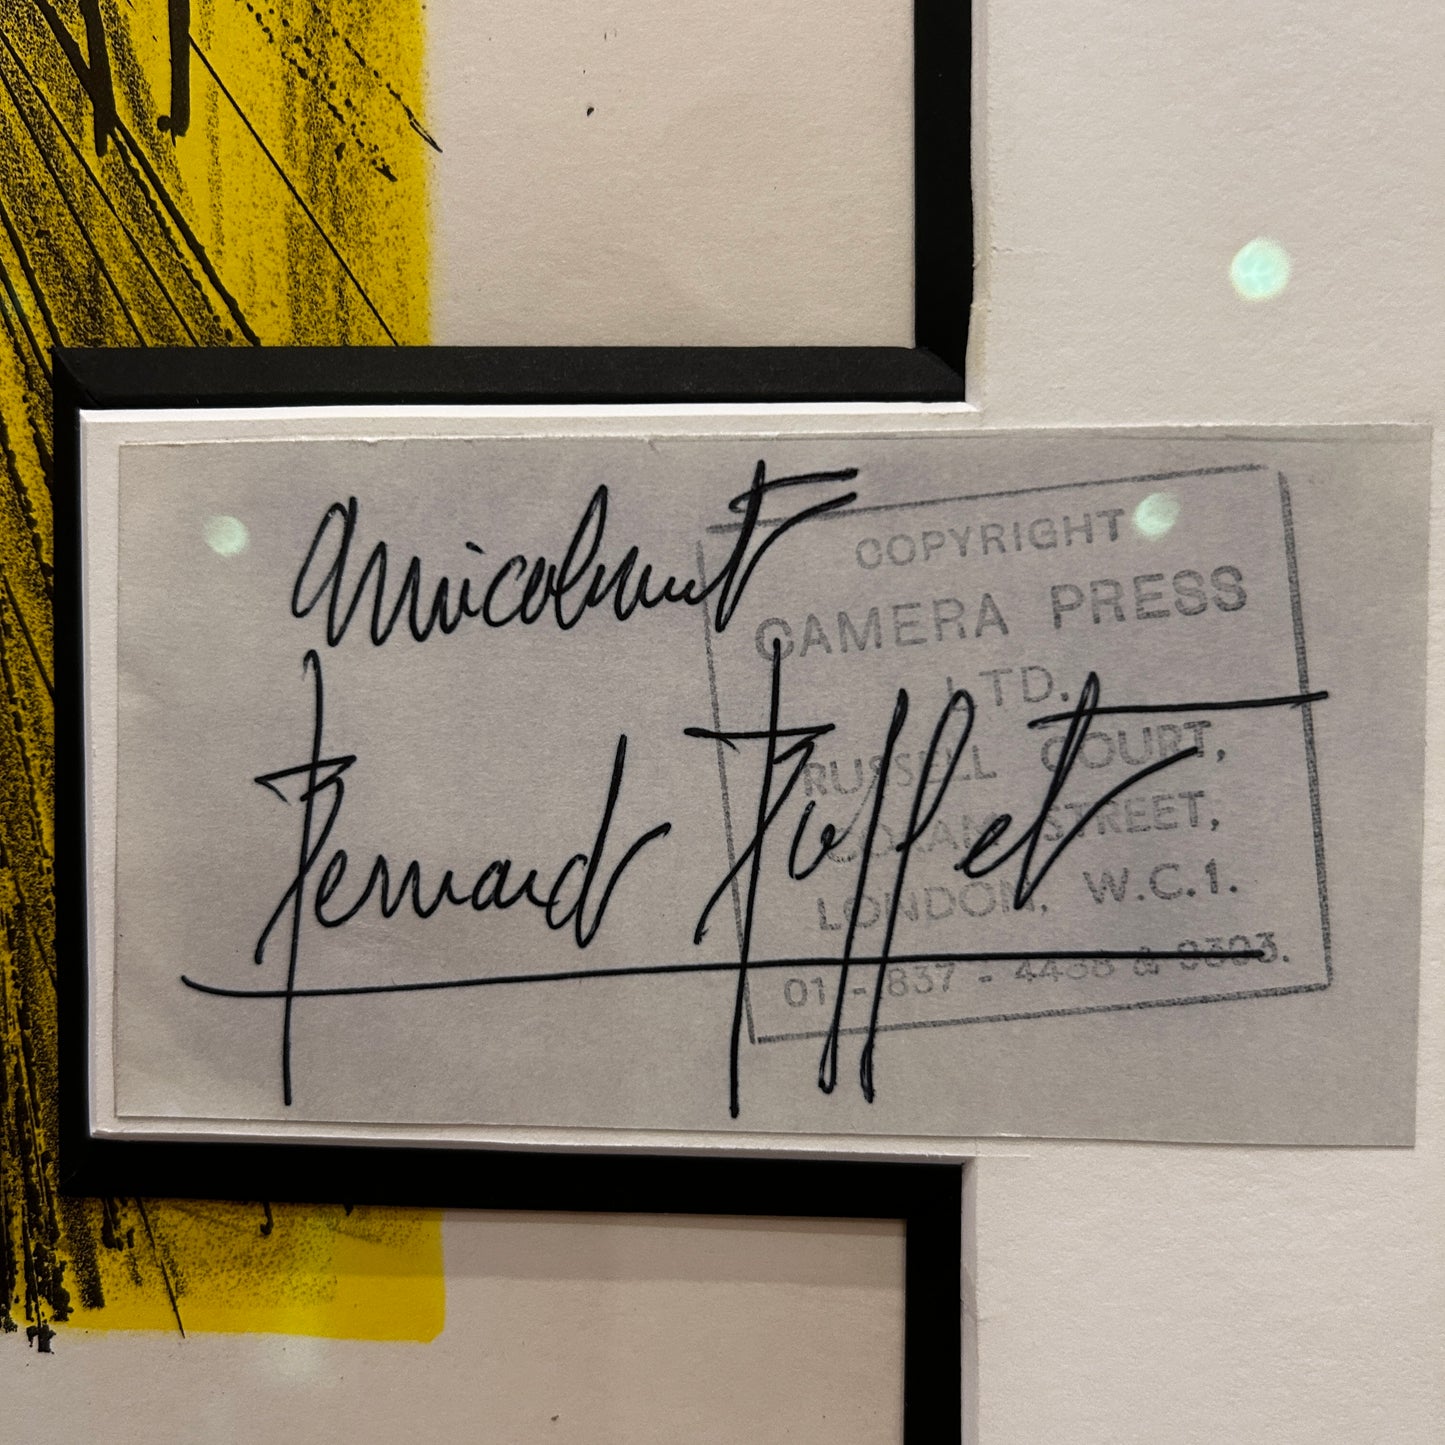 amicalement
Bernard Buffet
COPYRIGHT
CAMERA PRESS
LTD.
RUSSELL COURT,
CORAM STREET,
LONDON, W.C.1.
01 - 837 - 4488 & 9303.